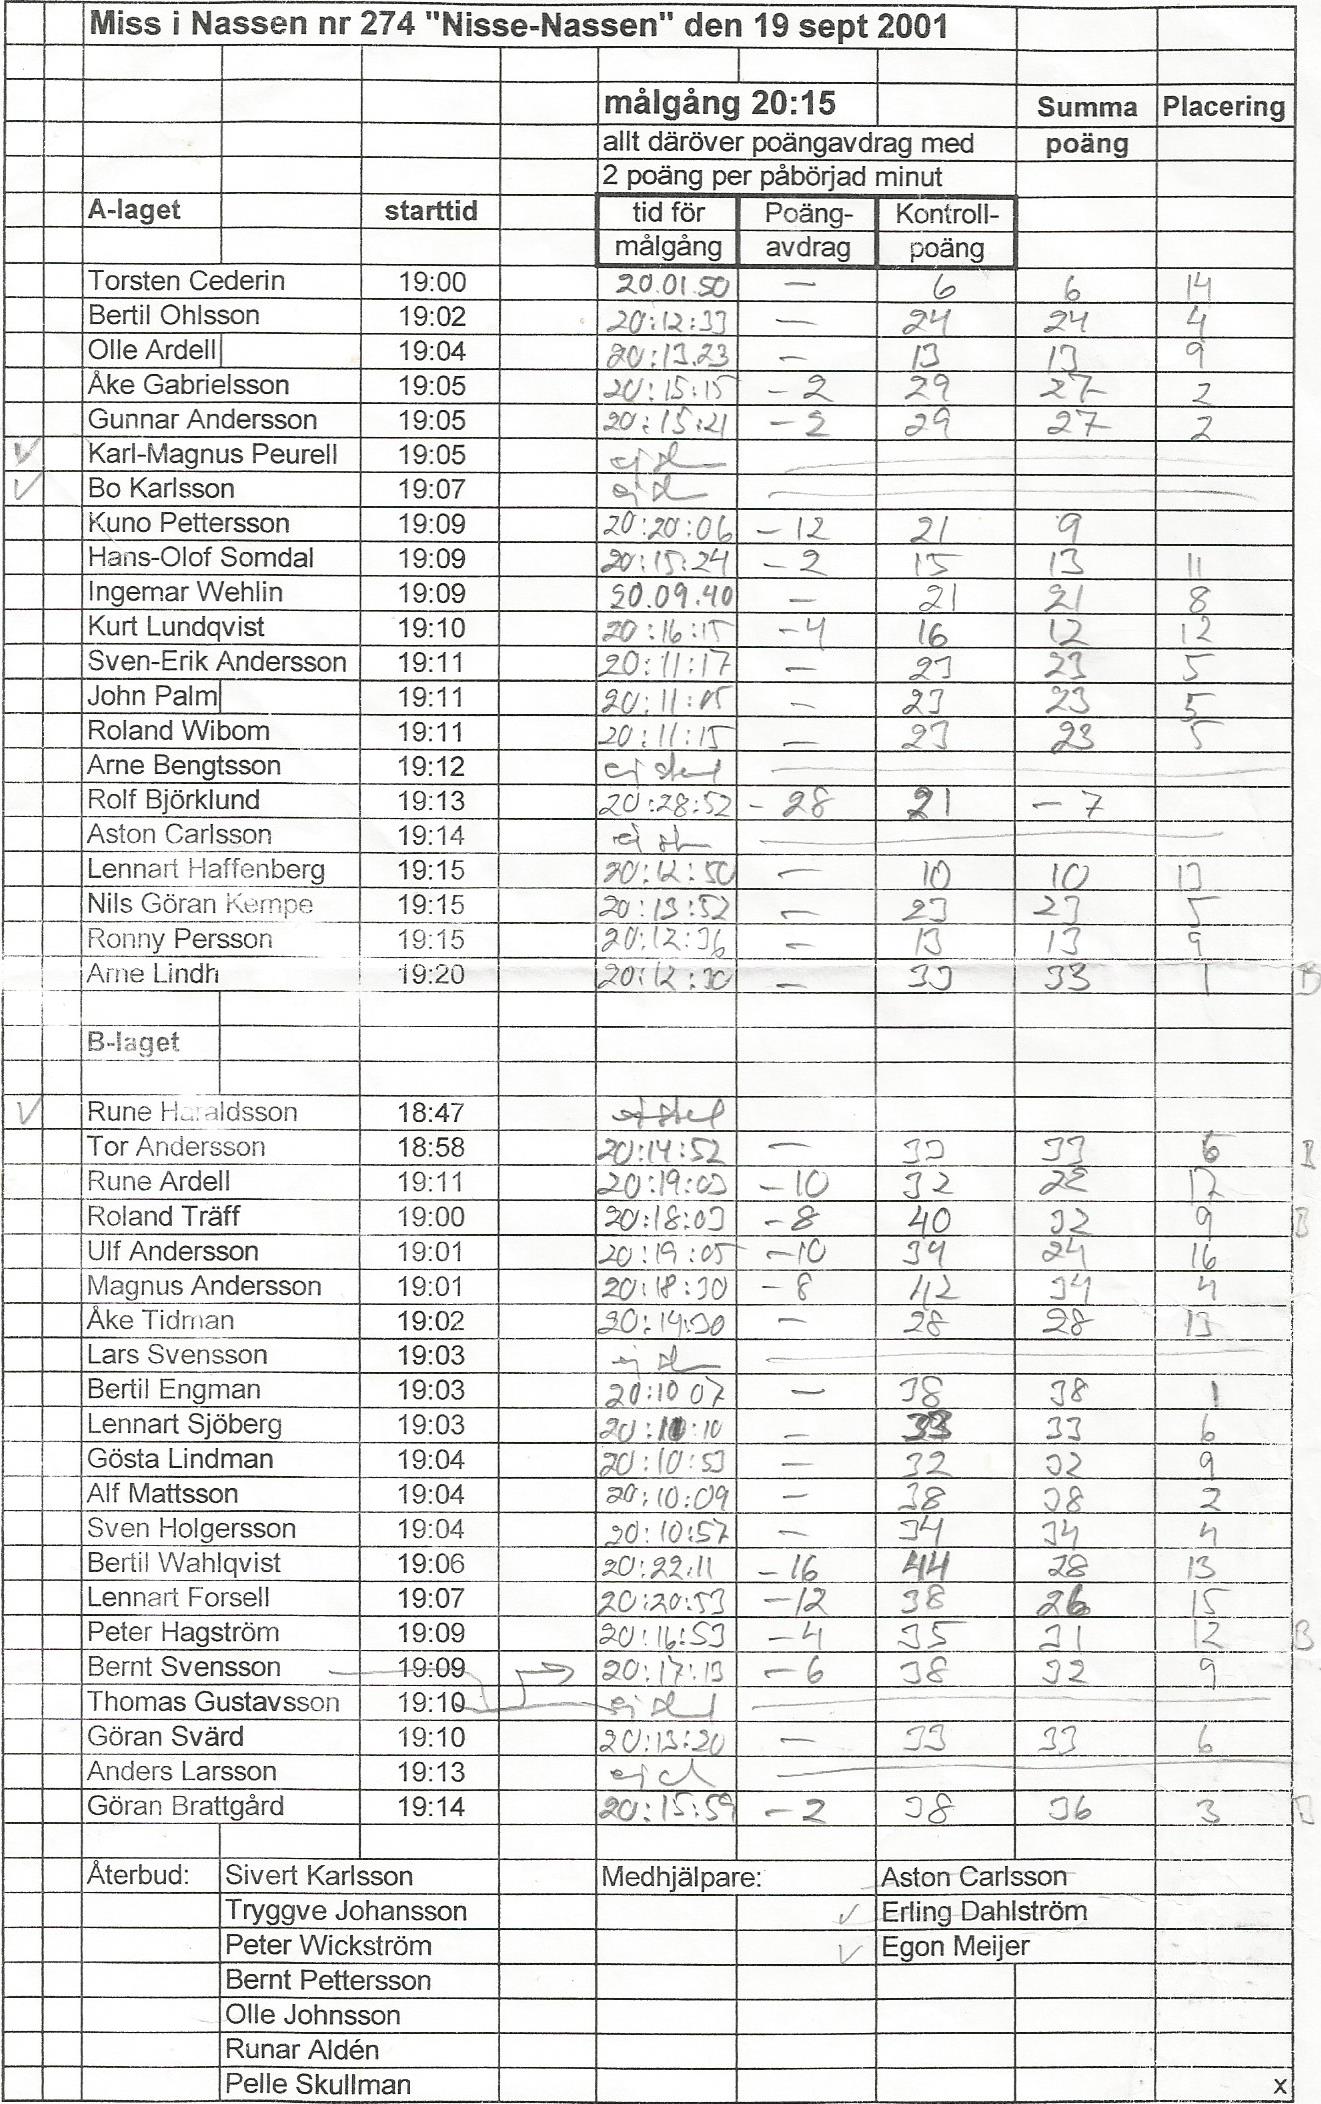 Miss i Nassen nr 274 "Nisse-Nassen" den 19 sept 2001
målgång 20:15 Summa Placering
allt däröver poängavdrag med poäng
2 poäng per påbörjad minut
A-laget starttid tid för Poäng- Kontroll-
målgång avdrag poäng
Torsten Cederin 19:00 20.01.50 — 6 6 14
Bertil Ohlsson 19:02 20:12:33 — 24 24 4
Olle Ardell 19:04 20:13.23 — 13 13 9
Åke Gabrielsson 19:05 20:15:15 -2 29 27 2
Gunnar Andersson 19:05 20:15:21 -2 29 27 2
Karl-Magnus Peurell 19:05 ej
Bo Karlsson 19:07 ej
Kuno Pettersson 19:09 20:20:06 -12 21 9
Hans-Olof Somdal 19:09 20:15:24 -2 15 13 11
Ingemar Wehlin 19:09 20.09.40 — 21 21 8
Kurt Lundqvist 19:10 20:16:15 -4 16 12 12
Sven-Erik Andersson 19:11 20:11:17 — 23 23 5
John Palm 19:11 20:11:05 — 23 23 5
Roland Wibom 19:11 20:11:15 — 23 23 5
Arne Bengtsson 19:12 ej
Rolf Björklund 19:13 20:28:52 -28 21 -7
Aston Carlsson 19:14 ej
Lennart Haffenberg 19:15 20:12:50 — 10 10 13
Nils Göran Kempe 19:15 20:13:52 — 23 23 5
Ronny Persson 19:15 20:12:36 — 13 13 9
Arne Lindh 19:20 20:12:30 — 33 33 1 B
B-laget
Rune Haraldsson 18:47 ej
Tor Andersson 18:58 20:14:52 — 33 33 6 B
Rune Ardell 19:11 20:19:03 -10 32 22 17
Roland Träff 19:00 20:18:03 -8 40 32 9 B
Ulf Andersson 19:01 20:19:05 -10 34 24 16
Magnus Andersson 19:01 20:18:30 -8 42 34 4
Åke Tidman 19:02 20:14:30 — 28 28 13
Lars Svensson 19:03 ej
Bertil Engman 19:03 20:10 07 — 38 38 1
Lennart Sjöberg 19:03 20:10:10 — 33 33 6
Gösta Lindman 19:04 20:10:53 — 32 32 9
Alf Mattsson 19:04 20:10:09 — 38 38 2
Sven Holgersson 19:04 20:10:57 — 34 34 4
Bertil Wahlqvist 19:06 20:22.11 -16 44 28 13
Lennart Forsell 19:07 20:20:53 -12 38 26 15
Peter Hagström 19:09 20:16:53 -4 35 31 12 B
Bernt Svensson 19:09 20:17:13 -6 38 32 9
Thomas Gustavsson 19:10 ej
Göran Svärd 19:10 20:13:20 — 33 33 6
Anders Larsson 19:13 ej
Göran Brattgård 19:14 20:15:59 -2 38 36 3 B
Återbud: Sivert Karlsson Medhjälpare: Aston Carlsson
Tryggve Johansson Erling Dahlström
Peter Wickström Egon Meijer
Bernt Pettersson
Olle Johnsson
Runar Aldén
Pelle Skullman x